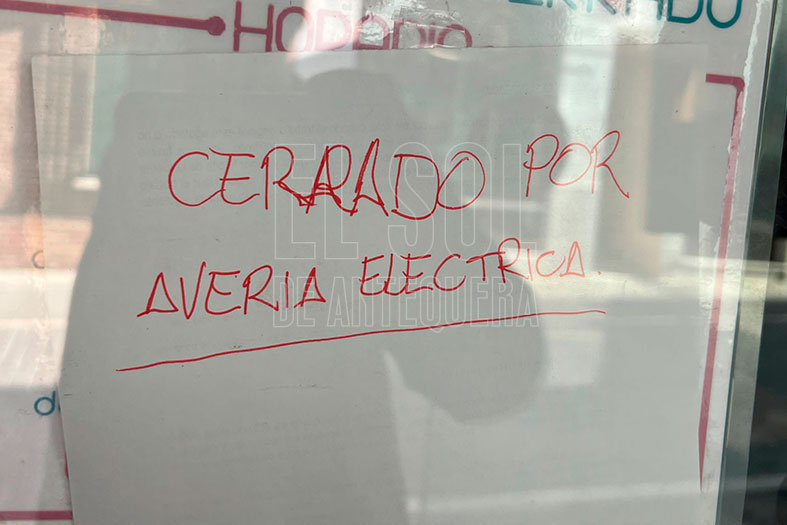 HORARIO
CERRADO POR
AVERIA ELECTRICA.
EL SOL
DE ANTEQUERA